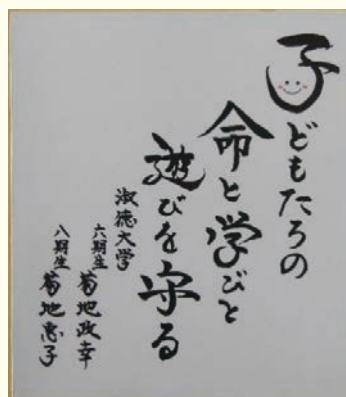 子どもたちの
命と学びと
遊びを守る
淑徳大学
六期生 菊地政幸
八期生 菊地恵子